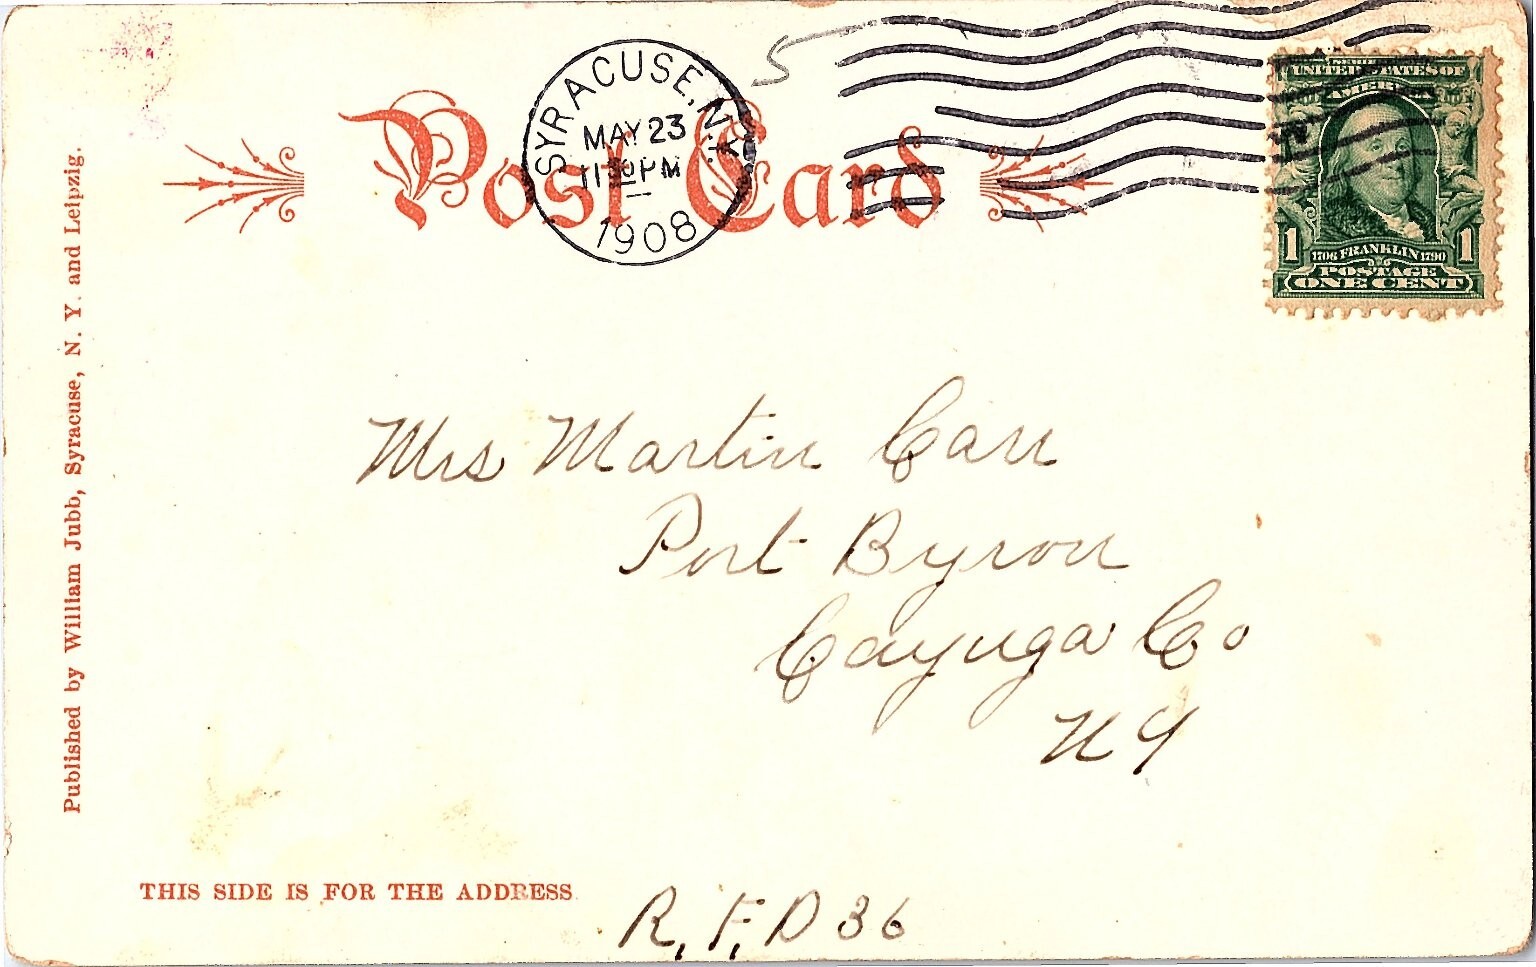 5
SYRACUSE, N.Y.
MAY 23
1908
Post Card
UNITED STATES OF
AMERICA
1 1706 FRANKLIN 1790 1
POSTAGE
ONE CENT
Mrs Martin Carr
Port Byron
Cayuga Co
N Y
Published by William Jubb, Syracuse, N. Y. and Leipzig.
THIS SIDE IS FOR THE ADDRESS
R, F, D 36